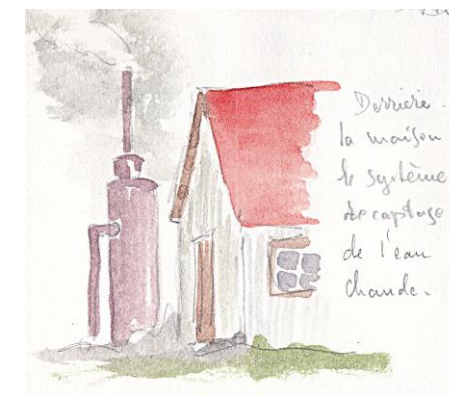 Derrière
la maison
le système
de captage
de l'eau
chaude.